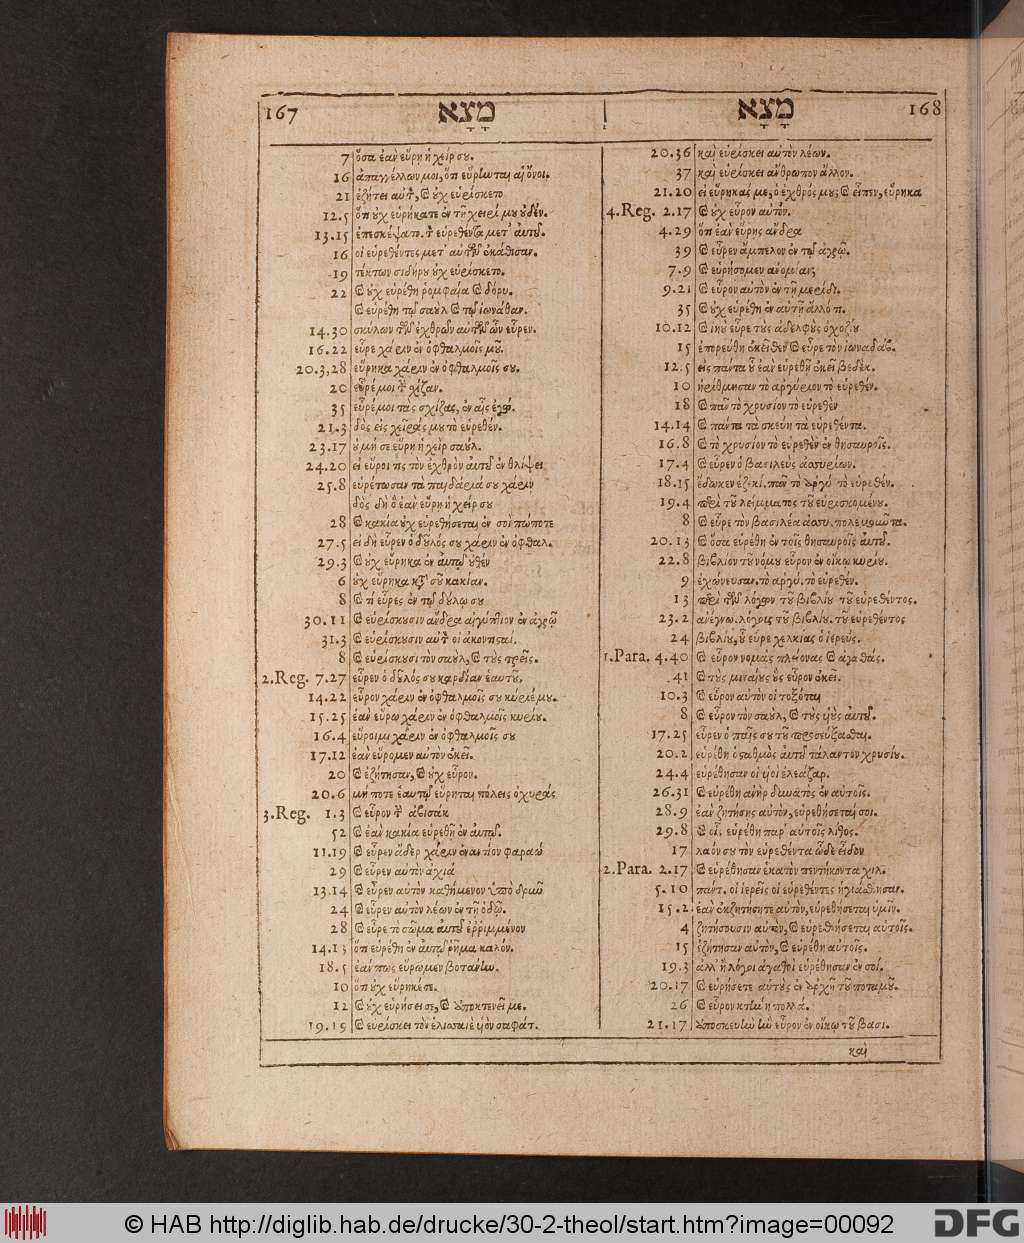 167 מָצָא
7 ὅσα ἐὰν εὕρη ἡ χείρ σου.
16 ἀπαγγέλλων μοι, ὅτι εὕρηνται αἱ ὄνοι.
21 ἐζήτει αὐτὸν, καὶ οὐχ εὑρίσκετο
12.5 ὅτι οὐχ εὑρήκατε ἐν τῇ χειρί μου οὐδέν.
13.15 ἐπεσκέψατο. τὸν εὑρεθέντα μετ' αὐτοῦ.
16 οἱ εὑρεθέντες μετ' αὐτῶν ἐκάθισαν.
19 τέκτων σιδήρου οὐχ εὑρίσκετο.
22 καὶ οὐχ εὑρέθη ῥομφαία καὶ δόρυ.
καὶ εὑρέθη τῷ σαοὺλ καὶ τῷ ἰωνάθαν.
14.30 σκύλων τῶν ἐχθρῶν αὐτῶν ὧν εὗρεν.
16.22 εὗρε χάριν ἐν ὀφθαλμοῖς μου.
20.3,28 εὕρηκα χάριν ἐν ὀφθαλμοῖς σου.
20 εὗρέ μοι τὴν σχίζαν.
35 εὗρέ μοι τὰς σχίζας, ἐν αἷς ἐγώ.
21.3 δὸς εἰς χεῖράς μου τὸ εὑρεθέν.
23.17 οὐ μή σε εὕρη ἡ χεὶρ σαούλ.
24.20 εἰ εὕροι τις τὸν ἐχθρὸν αὐτοῦ ἐν θλίψει
25.8 εὑρέτωσαν τὰ παιδάριά σου χάριν
δὸς δὴ ὃ ἐὰν εὕρη ἡ χείρ σου
28 καὶ κακία οὐχ εὑρεθήσεται ἐν σοὶ πώποτε
27.5 εἰ δὴ εὗρεν ὁ δοῦλός σου χάριν ἐν ὀφθαλ.
29.3 καὶ οὐχ εὕρηκα ἐν αὐτῷ οὐθέν
6 οὐχ εὕρηκα κατὰ σοῦ κακίαν.
8 καὶ τί εὗρες ἐν τῷ δούλῳ σου
30.11 καὶ εὑρίσκουσιν ἄνδρα αἰγύπτιον ἐν ἀγρῷ
31.3 καὶ εὑρίσκουσιν αὐτὸν οἱ ἀκοντισταί.
8 καὶ εὑρίσκουσι τὸν σαοὺλ, καὶ τοὺς τρεῖς.
2.Reg. 7.27 εὗρεν ὁ δοῦλός σου καρδίαν ἑαυτοῦ.
14.22 εὗρον χάριν ἐν ὀφθαλμοῖς σου κύριέ μου.
15.25 ἐὰν εὕρω χάριν ἐν ὀφθαλμοῖς κυρίου.
16.4 εὕροιμι χάριν ἐν ὀφθαλμοῖς σου
17.12 ἐὰν εὕρομεν αὐτὸν ἐκεῖ.
20 καὶ ἐζήτησαν, καὶ οὐχ εὗρον.
20.6 μή ποτε ἑαυτῷ εὕρηται πόλεις ὀχυράς
3.Reg. 1.3 καὶ εὗρον τὴν ἀβισὰκ
52 καὶ ἐὰν κακία εὑρεθῇ ἐν αὐτῷ.
11.19 καὶ εὗρεν ἄδερ χάριν ἐναντίον φαραώ
29 καὶ εὗρεν αὐτὸν ἀχιά
13.14 καὶ εὗρεν αὐτὸν καθήμενον ὑπὸ δρυῶ
24 καὶ εὗρεν αὐτὸν λέων ἐν τῇ ὁδῷ.
28 καὶ εὗρε τὸ σῶμα αὐτοῦ ἐρριμμένον
14.13 ὅτι εὑρέθη ἐν αὐτῷ ῥῆμα καλόν.
18.5 ἐάν πως εὕρωμεν βοτάνην.
10 ὅτι οὐχ εὑρηκέ σε.
12 καὶ οὐχ εὑρήσει σε, καὶ ἀποκτενεῖ με.
19.19 καὶ εὑρίσκει τὸν ἑλισσαιὲ υἱὸν σαφάτ.
מָצָא 168
20.36 καὶ εὑρίσκει αὐτὸν λέων.
37 καὶ εὑρίσκει ἄνθρωπον ἄλλον.
21.20 εἰ εὕρηκάς με, ὁ ἐχθρός μου; καὶ εἶπεν, εὕρηκα
4.Reg. 2.17 καὶ οὐχ εὗρον αὐτόν.
4.29 ὅτι ἐὰν εὕρῃς ἄνδρα
39 καὶ εὗρεν ἄμπελον ἐν τῷ ἀγρῷ.
7.9 καὶ εὑρήσομεν ἀνομίαν;
9.21 καὶ εὗρον αὐτὸν ἐν τῇ μερίδι.
35 καὶ οὐχ εὑρέθη ἐν αὐτῇ ἄλλό τι.
10.12 καὶ ἰηοὺ εὗρε τοὺς ἀδελφοὺς ὀχοζίου
15 ἐπορεύθη ἐκεῖθεν καὶ εὗρε τὸν ἰωναδάβ.
12.5 εἰς πάντα οὗ ἐὰν εὑρεθῇ ἐκεῖ βεδέκ.
10 ἠρίθμησαν τὸ ἀργύριον τὸ εὑρεθέν.
18 καὶ πᾶν τὸ χρυσίον τὸ εὑρεθὲν
14.14 καὶ πάντα τὰ σκεύη τὰ εὑρεθέντα.
16.8 καὶ τὸ χρυσίον τὸ εὑρεθὲν ἐν θησαυροῖς.
17.4 καὶ εὗρεν ὁ βασιλεὺς ἀσσυρίων.
18.15 ἔδωκεν ἐζεκί. πᾶν τὸ ἀργύ. τὸ εὑρεθέν.
19.4 περὶ τοῦ λείμματος τοῦ εὑρισκομένου.
8 καὶ εὗρε τὸν βασιλέα ἀσσυ. πολεμοῦντα.
20.13 καὶ ὅσα εὑρέθη ἐν τοῖς θησαυροῖς αὐτοῦ.
22.8 βιβλίον τοῦ νόμου εὗρον ἐν οἴκῳ κυρίου.
9 ἐχώνευσαν. τὸ ἀργύ. τὸ εὑρεθέν.
13 περὶ τῶν λόγων τοῦ βιβλίου τοῦ εὑρεθέντος.
23.2 ἀνέγνω. λόγους τοῦ βιβλίου. τοῦ εὑρεθέντος
24 βιβλίου, οὗ εὗρε χελκίας ὁ ἱερεύς.
1.Para. 4.40 καὶ εὗρον νομὰς πλείονας καὶ ἀγαθάς.
41 καὶ τοὺς μιναίους οὓς εὗρον ἐκεῖ.
10.3 καὶ εὗρον αὐτὸν οἱ τοξόται
8 καὶ εὗρον τὸν σαοὺλ, καὶ τοὺς υἱοὺς αὐτοῦ.
17.25 εὗρεν ὁ παῖς σου τοῦ προσεύξασθαι.
20.2 εὑρέθη ὁ σταθμὸς αὐτοῦ τάλαντον χρυσίου.
24.4 εὑρέθησαν οἱ υἱοὶ ἐλεάζαρ.
26.31 καὶ εὑρέθη ἀνὴρ δυνατὸς ἐν αὐτοῖς.
28.9 ἐὰν ζητήσῃς αὐτὸν, εὑρεθήσεταί σοι.
29.8 καὶ οἷς εὑρέθη παρ' αὐτοῖς λίθος.
17 λαόν σου τὸν εὑρεθέντα ὧδε εἶδον
2.Para. 2.17 καὶ εὑρέθησαν ἑκατὸν πεντήκοντα χιλ.
5.10 πάντ. οἱ ἱερεῖς οἱ εὑρεθέντες ἡγιάσθησαν.
15.2 ἐὰν ἐκζητήσητε αὐτὸν, εὑρεθήσεται ὑμῖν.
4 ζητήσουσιν αὐτὸν, καὶ εὑρεθήσεται αὐτοῖς.
15 ἐζήτησαν αὐτὸν, καὶ εὑρέθη αὐτοῖς.
19.3 ἀλλ' ἢ λόγοι ἀγαθοὶ εὑρέθησαν ἐν σοί.
20.17 καὶ εὑρήσετε αὐτοὺς ἐν ἀρχῇ τοῦ ποταμοῦ.
26 καὶ εὗρον κτήνη πολλά.
21.17 ἀποσκευὴν ἣν εὗρον ἐν οἴκῳ τοῦ βασι.
καὶ
© HAB http://diglib.hab.de/drucke/30-2-theol/start.htm?image=00092
DFG